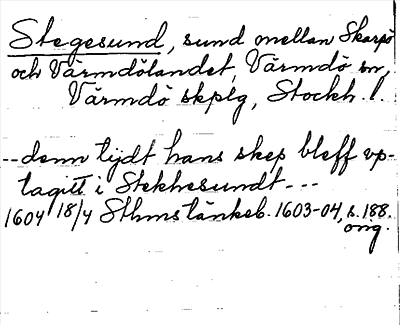 Stegesund, sund mellan Skarpö
och Värmdölandet, Värmdö sn,
Värmdö skplg, Stockh. l.
--denn tijdt hans skep bleff vp-
tagitt i Stekhesundt---
1604 18/4 Sthms tänkeb. 1603-04, s. 188.
orig.